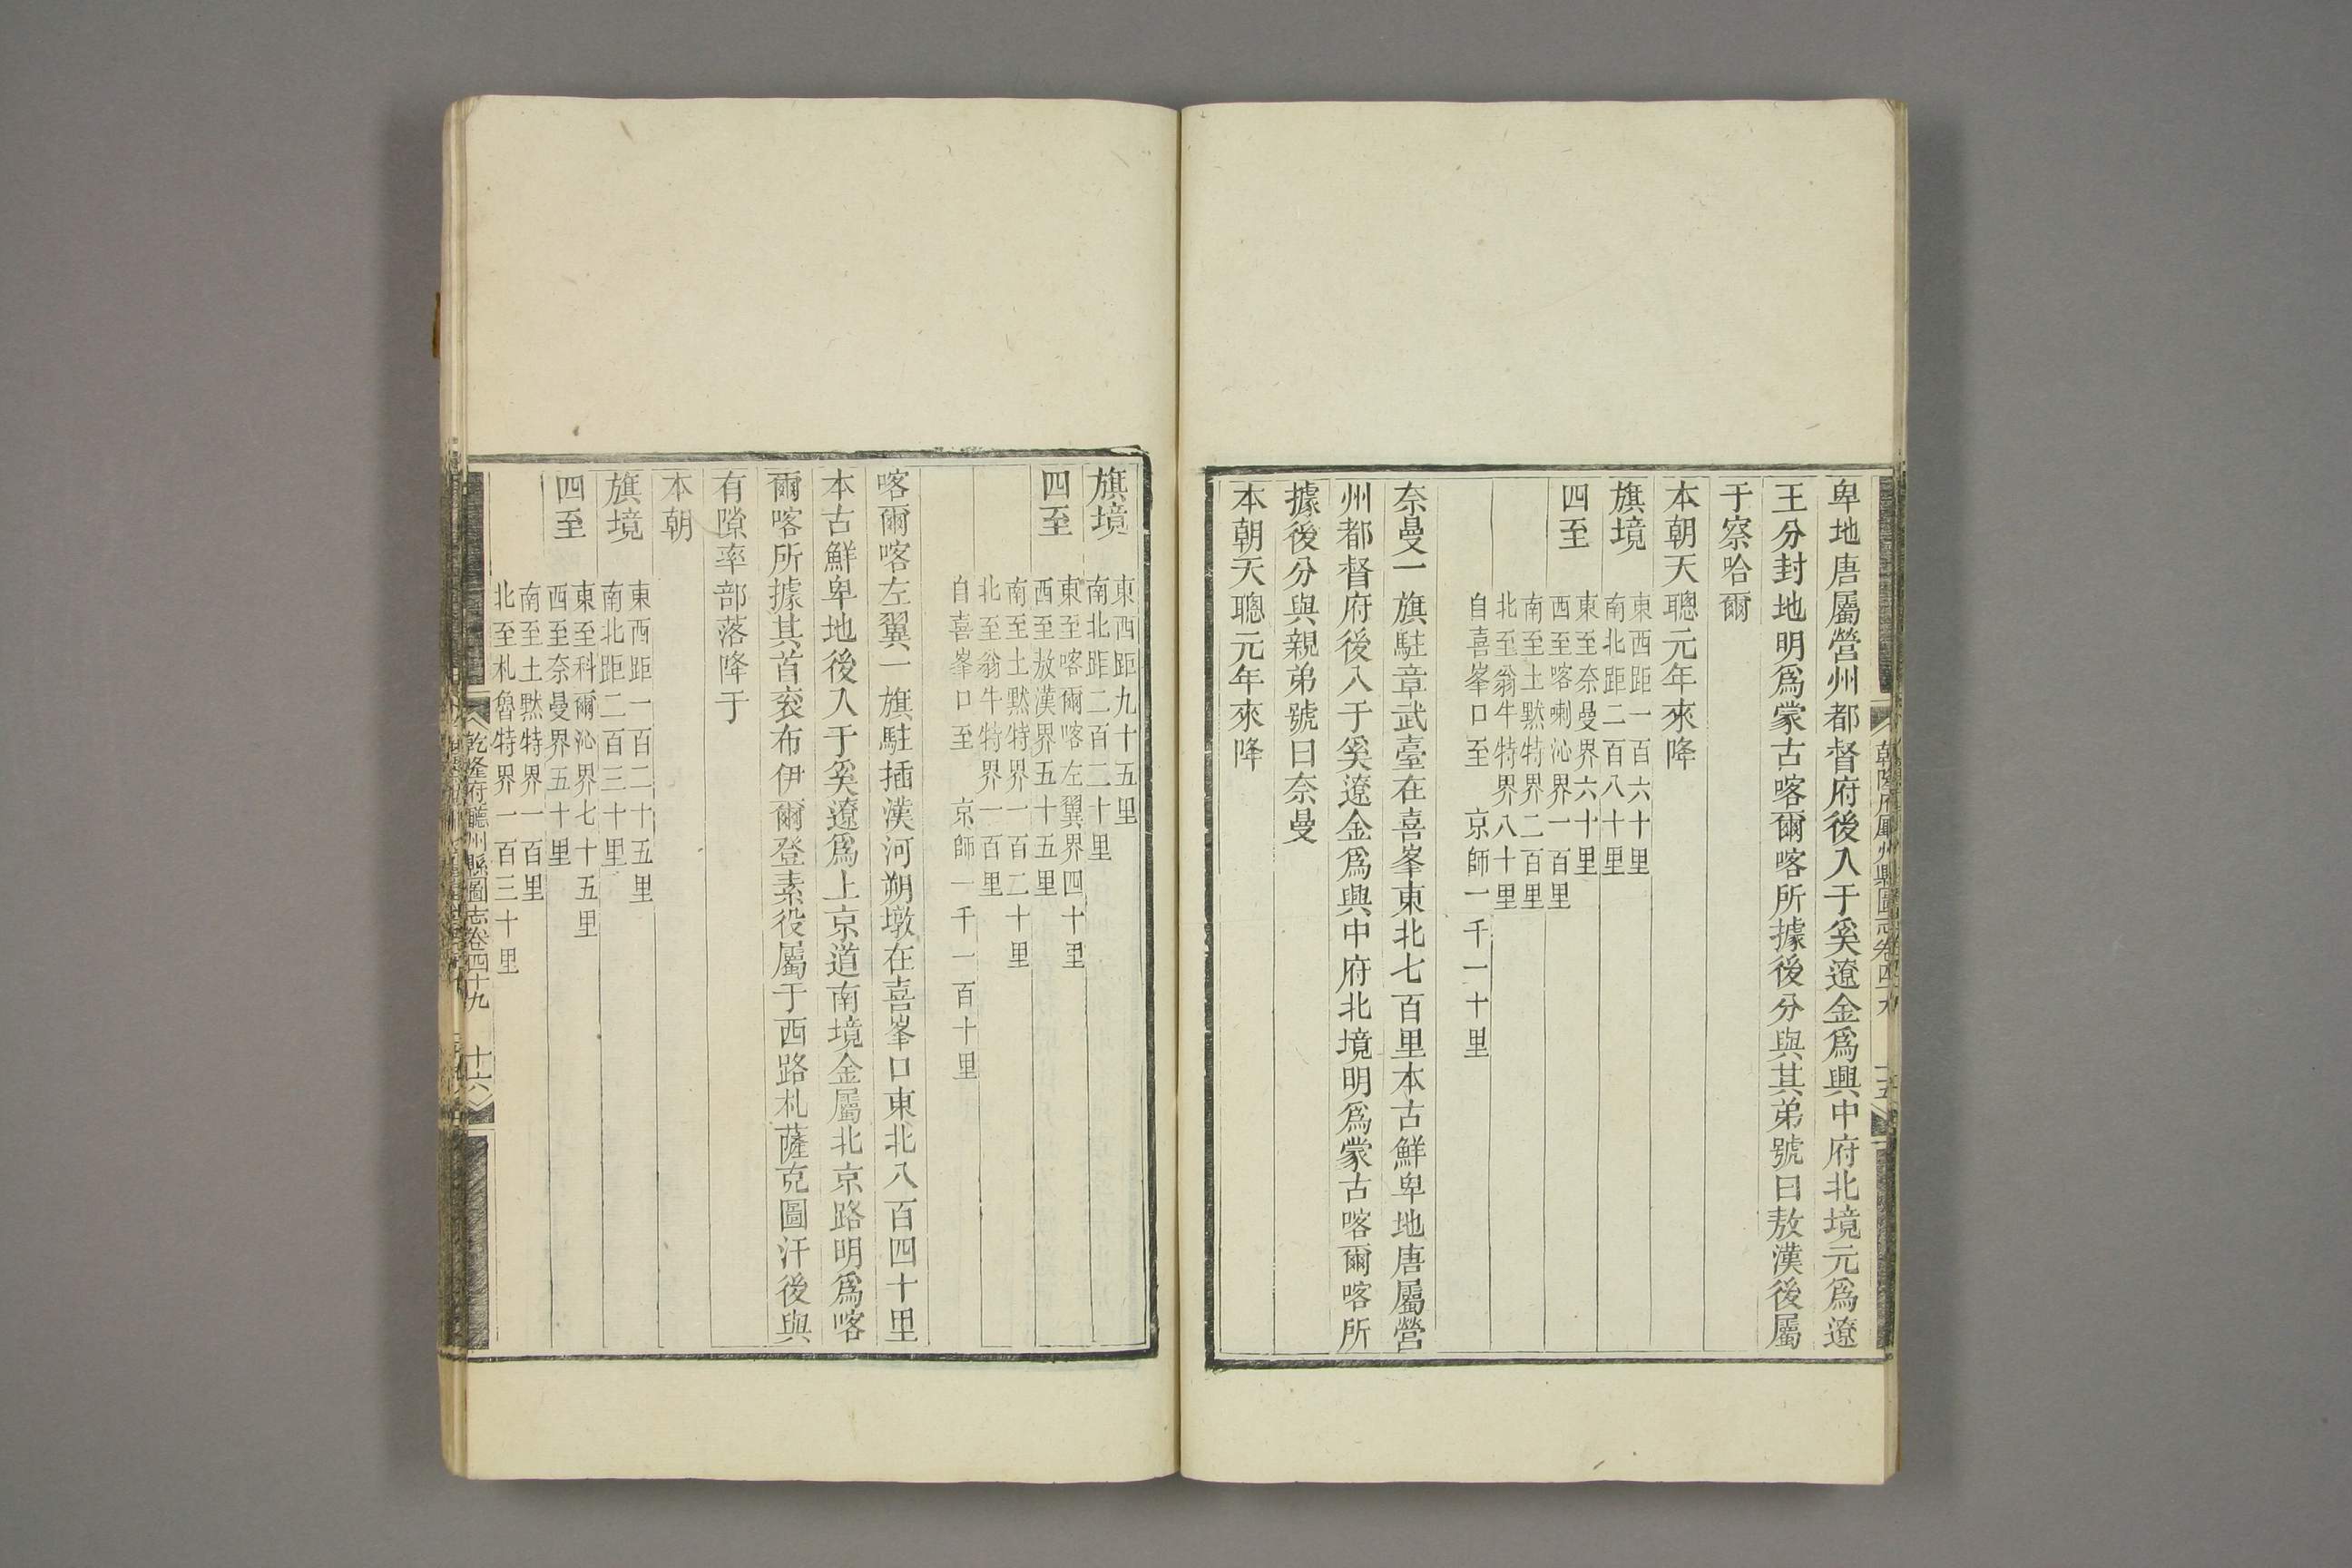 卑地唐屬營州都督府後入于奚遼金爲興中府北境元爲遼
王分封地明爲蒙古喀爾喀所據後分與其弟號曰敖漢後屬
于察哈爾
本朝天聰元年來降
旗境
東西距一百六十里
南北距二百八十里
四至
東至奈曼界六十里
西至喀喇沁界一百里
南至土黙特界二百里
北至翁牛特界八十里
自喜峯口至 京師一千一十里
奈曼一旗駐章武臺在喜峯東北七百里本古鮮卑地唐屬營
州都督府後入于奚遼金爲興中府北境明爲蒙古喀爾喀所
據後分與親弟號曰奈曼
本朝天聰元年來降
旗境
東西距九十五里
南北距二百二十里
四至
東至喀爾喀左翼界四十里
西至敖漢界五十五里
南至土黙特界一百二十里
北至翁牛特界一百里
自喜峯口至 京師一千一百十里
喀爾喀左翼一旗駐插漢河朔墩在喜峯口東北八百四十里
本古鮮卑地後入于奚遼爲上京道南境金屬北京路明爲喀
爾喀所據其首衮布伊爾登素役屬于西路札薩克圖汗後與
有隙率部落降于
本朝
旗境
東西距一百二十五里
南北距二百三十里
四至
東至科爾沁界七十五里
西至奈曼界五十里
南至土黙特界一百里
北至札魯特界一百三十里
乾隆府廳州縣圖志卷四十九 十六